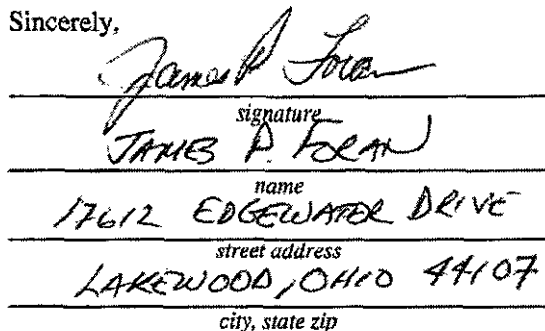 Sincerely,
James P Foran
signature
JAMES P. FORAN
name
17612 EDGEWATER DRIVE
street address
LAKEWOOD, OHIO 44107
city, state zip